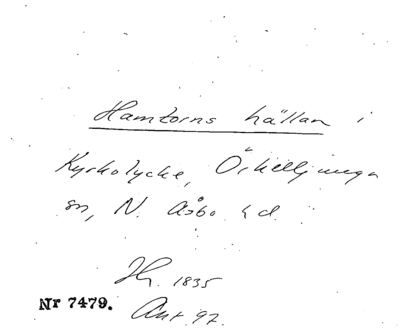 Hamtorns hällan i
Kyrkolycke, Örkelljunga
sn, N. Åsbo hd.
Hr. 1835
Nr 7479. Ant 97.